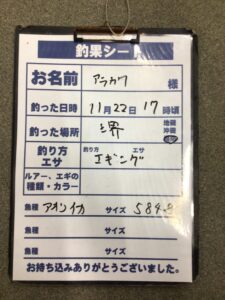 釣果シート
お名前 アラカワ 様
釣った日時 11月22日17時頃
釣った場所 堺 地磯 沖磯
釣り方 エサ 釣り方 エギング エサ
ルアー、エギの種類・カラー
魚種 アオリイカ サイズ 584.8
魚種 サイズ
魚種 サイズ
お持ち込みありがとうございました。